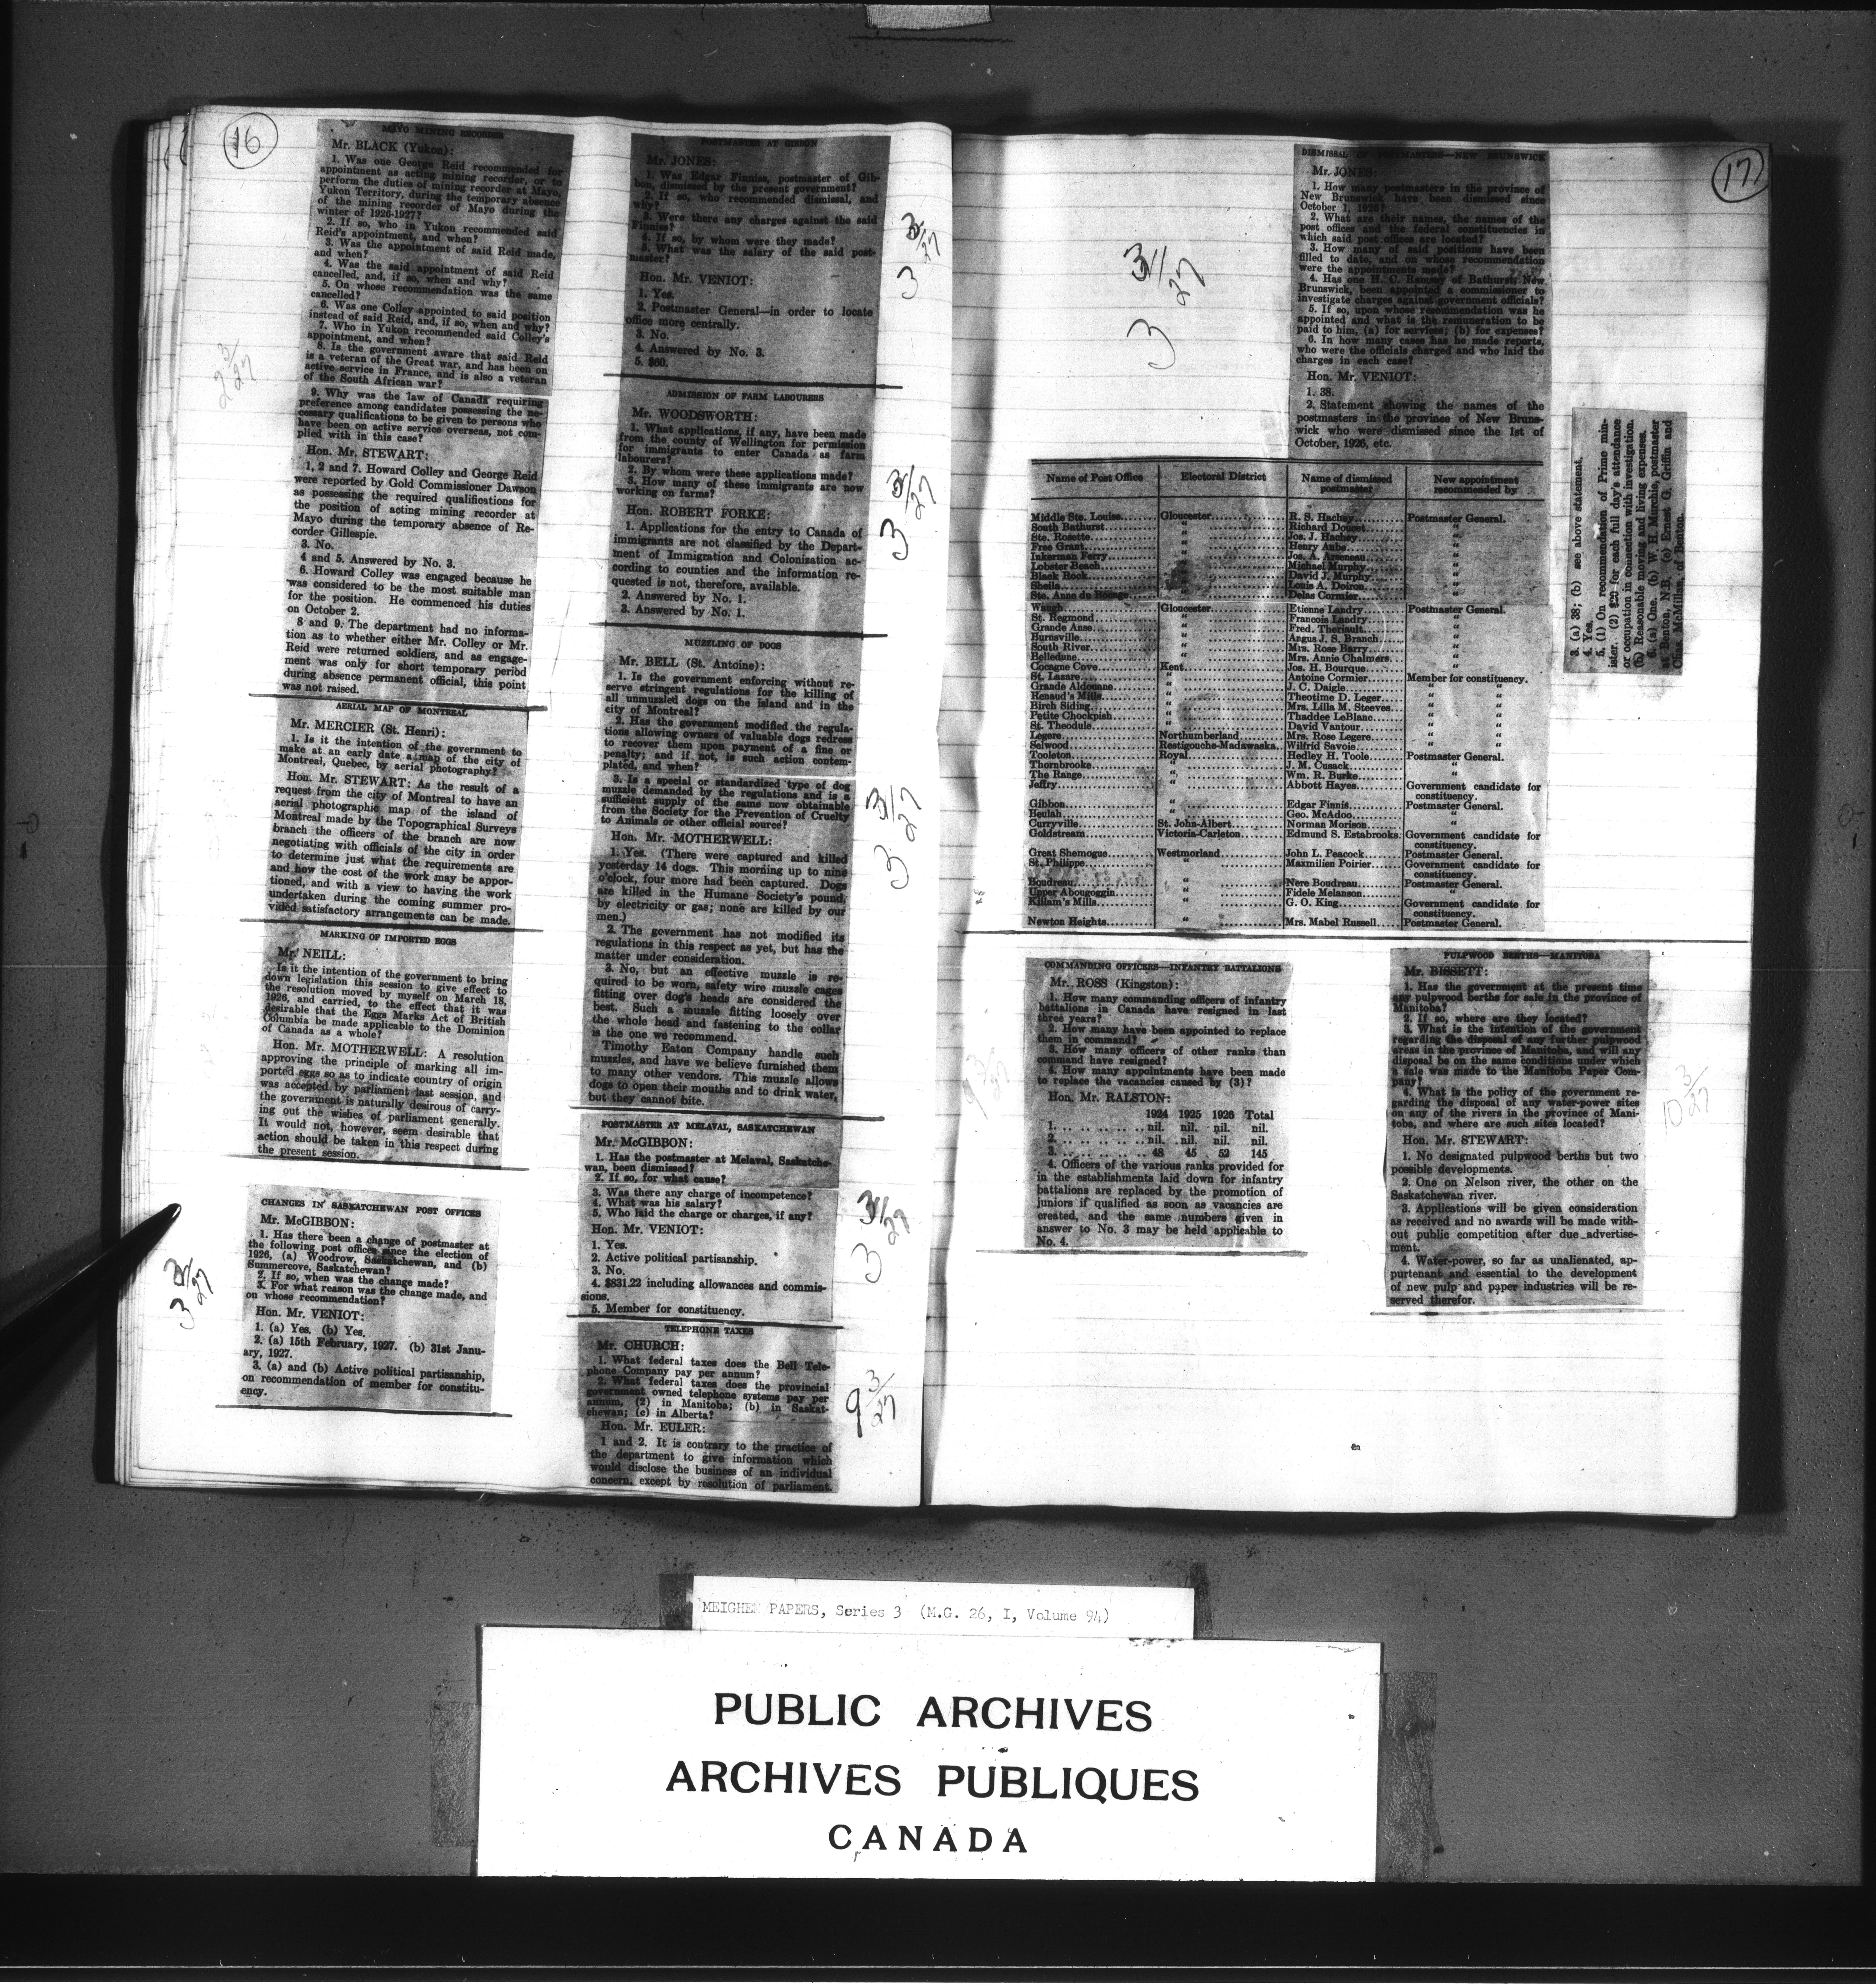 16
MAYO MINING RECORDER
Mr. BLACK (Yukon):
1. Was one George Reid recommended for
appointment as acting mining recorder, or to
perform the duties of mining recorder at Mayo,
Yukon Territory, during the temporary absence
of the mining recorder of Mayo during the
winter of 1926-1927?
2. If so, who in Yukon recommended said
Reid's appointment, and when?
3. Was the appointment of said Reid made,
and when?
4. Was the said appointment of said Reid
cancelled, and, if so, when and why?
5. On whose recommendation was the same
cancelled?
6. Was one Colley appointed to said position
instead of said Reid, and, if so, when and why?
7. Who in Yukon recommended said Colley's
appointment, and when?
8. Is the government aware that said Reid
is a veteran of the Great war, and has been on
active service in France, and is also a veteran
of the South African war?
9. Why was the law of Canada requiring
preference among candidates possessing the ne-
cessary qualifications to be given to persons who
have been on active service overseas, not com-
plied with in this case?
Hon. Mr. STEWART:
1, 2 and 7. Howard Colley and George Reid
were reported by Gold Commissioner Dawson
as possessing the required qualifications for
the position of acting mining recorder at
Mayo during the temporary absence of Re-
corder Gillespie.
3. No.
4 and 5. Answered by No. 3.
6. Howard Colley was engaged because he
was considered to be the most suitable man
for the position. He commenced his duties
on October 2.
8 and 9. The department had no informa-
tion as to whether either Mr. Colley or Mr.
Reid were returned soldiers, and as engage-
ment was only for short temporary period
during absence permanent official, this point
was not raised.
2 3/27
AERIAL MAP OF MONTREAL
Mr. MERCIER (St. Henri):
1. Is it the intention of the government to
make at an early date a map of the city of
Montreal, Quebec, by aerial photography?
Hon. Mr. STEWART: As the result of a
request from the city of Montreal to have an
aerial photographic map of the island of
Montreal made by the Topographical Surveys
branch the officers of the branch are now
negotiating with officials of the city in order
to determine just what the requirements are
and how the cost of the work may be appor-
tioned, and with a view to having the work
undertaken during the coming summer pro-
vided satisfactory arrangements can be made.
MARKING OF IMPORTED EGGS
Mr. NEILL:
Is it the intention of the government to bring
down legislation this session to give effect to
the resolution moved by myself on March 18,
1926, and carried, to the effect that it was
desirable that the Eggs Marks Act of British
Columbia be made applicable to the Dominion
of Canada as a whole?
Hon. Mr. MOTHERWELL: A resolution
approving the principle of marking all im-
ported eggs so as to indicate country of origin
was accepted by parliament last session, and
the government is naturally desirous of carry-
ing out the wishes of parliament generally.
It would not, however, seem desirable that
action should be taken in this respect during
the present session.
CHANGES IN SASKATCHEWAN POST OFFICES
Mr. McGIBBON:
1. Has there been a change of postmaster at
the following post offices since the election of
1926, (a) Woodrow, Saskatchewan, and (b)
Summercove, Saskatchewan?
2. If so, when was the change made?
3. For what reason was the change made, and
on whose recommendation?
Hon. Mr. VENIOT:
1. (a) Yes. (b) Yes.
2. (a) 15th February, 1927. (b) 31st Janu-
ary, 1927.
3. (a) and (b) Active political partisanship,
on recommendation of member for constitu-
ency.
3 3/27
POSTMASTER AT GIBBON
Mr. JONES:
1. Was Edgar Finniss, postmaster of Gib-
bon, dismissed by the present government?
2. If so, who recommended dismissal, and
why?
3. Were there any charges against the said
Finniss?
4. If so, by whom were they made?
5. What was the salary of the said post-
master?
Hon. Mr. VENIOT:
1. Yes.
2. Postmaster General—in order to locate
office more centrally.
3. No.
4. Answered by No. 3.
5. $60.
3 3/27
ADMISSION OF FARM LABOURERS
Mr. WOODSWORTH:
1. What applications, if any, have been made
from the county of Wellington for permission
for immigrants to enter Canada as farm
labourers?
2. By whom were these applications made?
3. How many of these immigrants are now
working on farms?
Hon. ROBERT FORKE:
1. Applications for the entry to Canada of
immigrants are not classified by the Depart-
ment of Immigration and Colonization ac-
cording to counties and the information re-
quested is not, therefore, available.
2. Answered by No. 1.
3. Answered by No. 1.
3 3/27
MUZZLING OF DOGS
Mr. BELL (St. Antoine):
1. Is the government enforcing without re-
serve stringent regulations for the killing of
all unmuzzled dogs on the island and in the
city of Montreal?
2. Has the government modified the regula-
tions allowing owners of valuable dogs redress
to recover them upon payment of a fine or
penalty; and if not, is such action contem-
plated, and when?
3. Is a special or standardized type of dog
muzzle demanded by the regulations and is a
sufficient supply of the same now obtainable
from the Society for the Prevention of Cruelty
to Animals or other official source?
Hon. Mr. MOTHERWELL:
1. Yes. (There were captured and killed
yesterday 14 dogs. This morning up to nine
o'clock, four more had been captured. Dogs
are killed in the Humane Society's pound,
by electricity or gas; none are killed by our
men.)
2. The government has not modified its
regulations in this respect as yet, but has the
matter under consideration.
3. No, but an effective muzzle is re-
quired to be worn, safety wire muzzle cages
fitting over dog's heads are considered the
best. Such a muzzle fitting loosely over
the whole head and fastening to the collar
is the one we recommend.
Timothy Eaton Company handle such
muzzles, and have we believe furnished them
to many other vendors. This muzzle allows
dogs to open their mouths and to drink water,
but they cannot bite.
3 3/27
POSTMASTER AT MELAVAL, SASKATCHEWAN
Mr. McGIBBON:
1. Has the postmaster at Melaval, Saskatche-
wan, been dismissed?
2. If so, for what cause?
3. Was there any charge of incompetence?
4. What was his salary?
5. Who laid the charge or charges, if any?
Hon. Mr. VENIOT:
1. Yes.
2. Active political partisanship.
3. No.
4. $831.22 including allowances and commis-
sions.
5. Member for constituency.
3 3/27
TELEPHONE TAXES
Mr. CHURCH:
1. What federal taxes does the Bell Tele-
phone Company pay per annum?
2. What federal taxes does the provincial
government owned telephone systems pay per
annum, (2) in Manitoba; (b) in Saskat-
chewan; (c) in Alberta?
Hon. Mr. EULER:
1 and 2. It is contrary to the practice of
the department to give information which
would disclose the business of an individual
concern, except by resolution of parliament.
9 3/27
17
DISMISSAL OF POSTMASTERS—NEW BRUNSWICK
Mr. JONES:
1. How many postmasters in the province of
New Brunswick have been dismissed since
October 1, 1926?
2. What are their names, the names of the
post offices and the federal constituencies in
which said post offices are located?
3. How many of said positions have been
filled to date, and on whose recommendation
were the appointments made?
4. Has one H. C. Ramsay of Bathurst, New
Brunswick, been appointed a commissioner to
investigate charges against government officials?
5. If so, upon whose recommendation was he
appointed and what is the remuneration to be
paid to him, (a) for services; (b) for expenses?
6. In how many cases has he made reports,
who were the officials charged and who laid the
charges in each case?
Hon. Mr. VENIOT:
1. 38.
2. Statement showing the names of the
postmasters in the province of New Bruns-
wick who were dismissed since the 1st of
October, 1926, etc.
3 3/27
Name of Post Office Electoral District Name of dismissed postmaster New appointment recommended by
Middle Ste. Louise Gloucester R. S. Hachey Postmaster General.
South Bathurst " Richard Doucet "
Ste. Rosette " Jos. J. Hachey "
Free Grant " Henry Aube "
Inkerman Ferry " Jos. A. Arseneau "
Lobster Beach " Michael Murphy "
Black Rock David J. Murphy "
Sheila Louis A. Doiron "
Ste. Anne du Bocage " Delas Cormier "
Waugh Gloucester Etienne Landry Postmaster General.
St. Regmond " Francois Landry "
Grande Anse " Fred. Theriault "
Burnsville " Angus J. S. Branch "
South River " Mrs. Rose Barry "
Belledune " Mrs. Annie Chalmers "
Cocagne Cove Kent Jos. H. Bourque "
St. Lazare " Antoine Cormier Member for constituency.
Grande Aldouane " J. C. Daigle " "
Renaud's Mills " Theotime D. Leger " "
Birch Siding " Mrs. Lilla M. Steeves " "
Petite Chockpish " Thaddee LeBlanc " "
St. Theodule " David Vantour " "
Legere Northumberland Mrs. Rose Legere " "
Selwood Restigouche-Madawaska Wilfrid Savoie " "
Tooleton Royal Hedley H. Toole Postmaster General.
Thornbrooke " J. M. Cusack "
The Range " Wm. R. Burke "
Jeffry " Abbott Hayes Government candidate for
constituency.
Gibbon " Edgar Finnis Postmaster General.
Beulah " Geo. McAdoo "
Curryville St. John-Albert Norman Morison "
Goldstream Victoria-Carleton Edmund S. Estabrooks Government candidate for
constituency.
Great Shemogue Westmorland John L. Peacock Postmaster General.
St. Philippe " Maxmilien Poirier Government candidate for
constituency.
Boudreau " Nere Boudreau Postmaster General.
Upper Abougoggin " Fidele Melanson "
Killam's Mills " G. O. King Government candidate for
constituency.
Newton Heights " Mrs. Mabel Russell Postmaster General.
3. (a) 38; (b) see above statement.
4. Yes.
5. (1) On recommendation of Prime min-
ister. (2) $20 for each full day's attendance
or occupation in connection with investigation.
(b) Reasonable moving and living expenses.
6. (a) One. (b) W. H. Murchie, postmaster
at Benton, N.B. (c) Ernest G. Griffin and
Chas. McMillan, of Benton.
COMMANDING OFFICERS—INFANTRY BATTALIONS
Mr. ROSS (Kingston):
1. How many commanding officers of infantry
battalions in Canada have resigned in last
three years?
2. How many have been appointed to replace
them in command?
3. How many officers of other ranks than
command have resigned?
4. How many appointments have been made
to replace the vacancies caused by (3)?
Hon. Mr. RALSTON:
1924 1925 1926 Total
1. nil. nil. nil. nil.
2. nil. nil. nil. nil.
3. 48 45 52 145
4. Officers of the various ranks provided for
in the establishments laid down for infantry
battalions are replaced by the promotion of
juniors if qualified as soon as vacancies are
created, and the same numbers given in
answer to No. 3 may be held applicable to
No. 4.
9 3/27
PULPWOOD BERTHS—MANITOBA
Mr. BISSETT:
1. Has the government at the present time
any pulpwood berths for sale in the province of
Manitoba?
2. If so, where are they located?
3. What is the intention of the government
regarding the disposal of any further pulpwood
areas in the province of Manitoba, and will any
disposal be on the same conditions under which
a sale was made to the Manitoba Paper Com-
pany?
4. What is the policy of the government re-
garding the disposal of any water-power sites
on any of the rivers in the province of Mani-
toba, and where are such sites located?
Hon. Mr. STEWART:
1. No designated pulpwood berths but two
possible developments.
2. One on Nelson river, the other on the
Saskatchewan river.
3. Applications will be given consideration
as received and no awards will be made with-
out public competition after due advertise-
ment.
4. Water-power, so far as unalienated, ap-
purtenant and essential to the development
of new pulp and paper industries will be re-
served therefor.
10 3/27
MEIGHEN PAPERS, Series 3 (M.G. 26, I, Volume 94)
PUBLIC ARCHIVES
ARCHIVES PUBLIQUES
CANADA